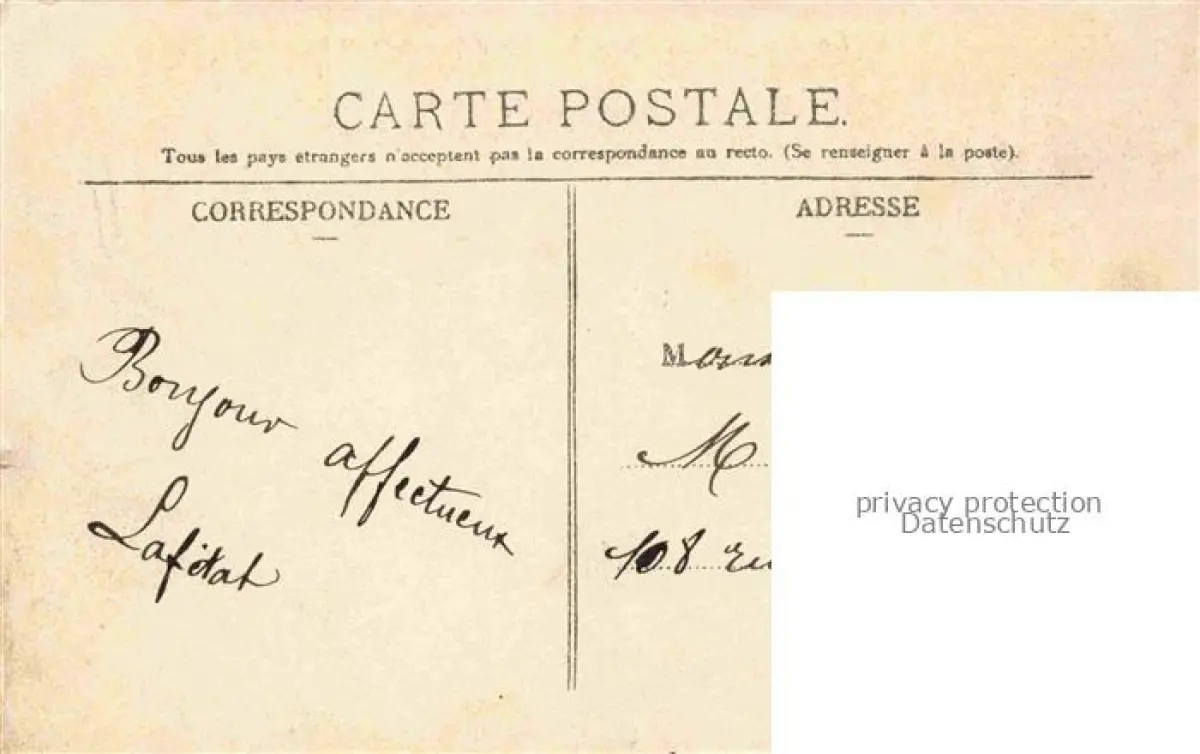 CARTE POSTALE.
Tous les pays étrangers n'acceptent pas la correspondance au recto. (Se renseigner à la poste).
CORRESPONDANCE
ADRESSE
Bonjour affectueux
Lafitat
M
108 ru
privacy protection
Datenschutz